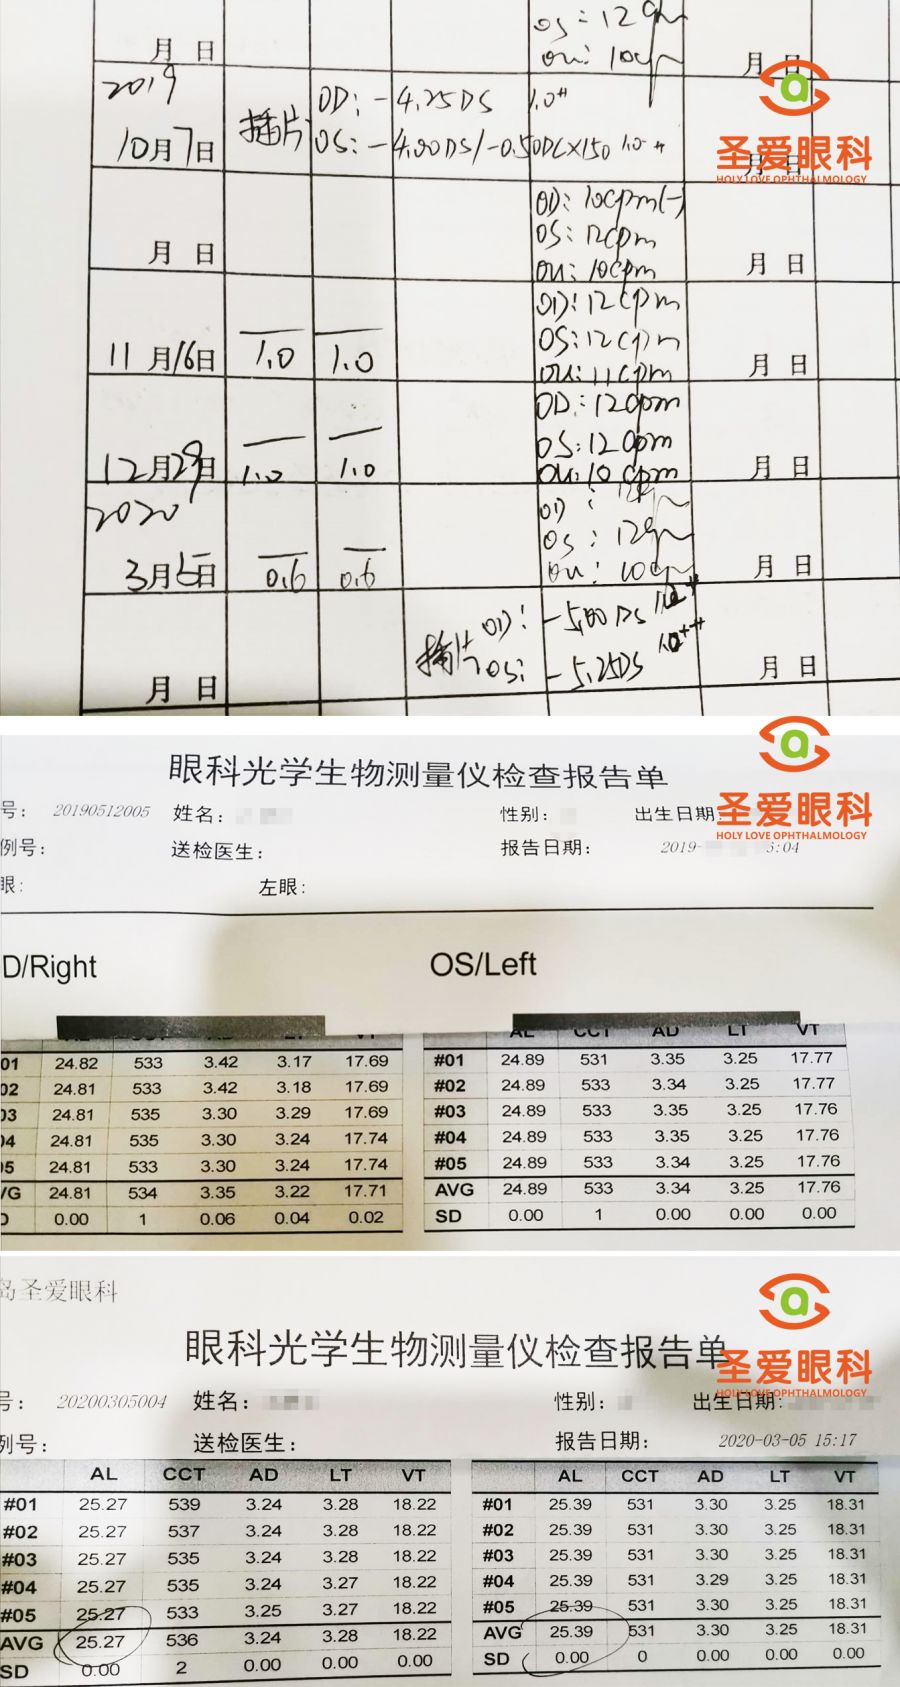 OS: 12cpm
月 日 OU: 10cpm 月 日
2019
10月7日 插片 OD: -4.25DS 1.0⁺
OS: -4.00DS/-0.50DC×150 1.0⁻⁺
月 日
圣爱眼科
HOLY LOVE OPHTHALMOLOGY
OD: 10cpm(-)
OS: 12cpm
月 日 OU: 10cpm 月 日
OD: 12cpm
OS: 12cpm
11月16日 1.0 1.0 OU: 11cpm 月 日
OD: 12cpm
OS: 12cpm
12月29日 1.0 1.0 OU: 10cpm 月 日
2020
OD:
OS: 12cpm
3月5日 0.6 0.6 OU: 10cpm 月 日
插片 OD: -5.00DS 1.0⁺
OS: -5.25DS 1.0⁺⁺
月 日 月 日
眼科光学生物测量仪检查报告单
号: 20190512005 姓名: 性别: 出生日期:
圣爱眼科
HOLY LOVE OPHTHALMOLOGY
例号: 送检医生: 报告日期: 2019- 6:04
眼: 左眼:
D/Right OS/Left
AL CCT AD LT VT
01 24.82 533 3.42 3.17 17.69 #01 24.89 531 3.35 3.25 17.77
02 24.81 533 3.42 3.18 17.69 #02 24.89 533 3.34 3.25 17.77
03 24.81 535 3.30 3.29 17.69 #03 24.89 533 3.35 3.25 17.76
04 24.81 535 3.30 3.24 17.74 #04 24.89 533 3.35 3.25 17.76
05 24.81 533 3.30 3.24 17.74 #05 24.89 533 3.34 3.25 17.76
VG 24.81 534 3.35 3.22 17.71 AVG 24.89 533 3.34 3.25 17.76
D 0.00 1 0.06 0.04 0.02 SD 0.00 1 0.00 0.00 0.00
岛圣爱眼科
眼科光学生物测量仪检查报告单
圣爱眼科
HOLY LOVE OPHTHALMOLOGY
号: 20200305004 姓名: 性别: 出生日期:
例号: 送检医生: 报告日期: 2020-03-05 15:17
AL CCT AD LT VT AL CCT AD LT VT
#01 25.27 539 3.24 3.28 18.22 #01 25.39 531 3.30 3.25 18.31
#02 25.27 537 3.24 3.28 18.22 #02 25.39 531 3.30 3.25 18.31
#03 25.27 535 3.24 3.28 18.22 #03 25.39 531 3.30 3.25 18.31
#04 25.27 535 3.24 3.27 18.22 #04 25.39 531 3.29 3.25 18.31
#05 25.27 533 3.25 3.27 18.22 #05 25.39 531 3.30 3.25 18.31
AVG 25.27 536 3.24 3.28 18.22 AVG 25.39 531 3.30 3.25 18.31
SD 0.00 2 0.00 0.00 0.00 SD 0.00 0 0.00 0.00 0.00